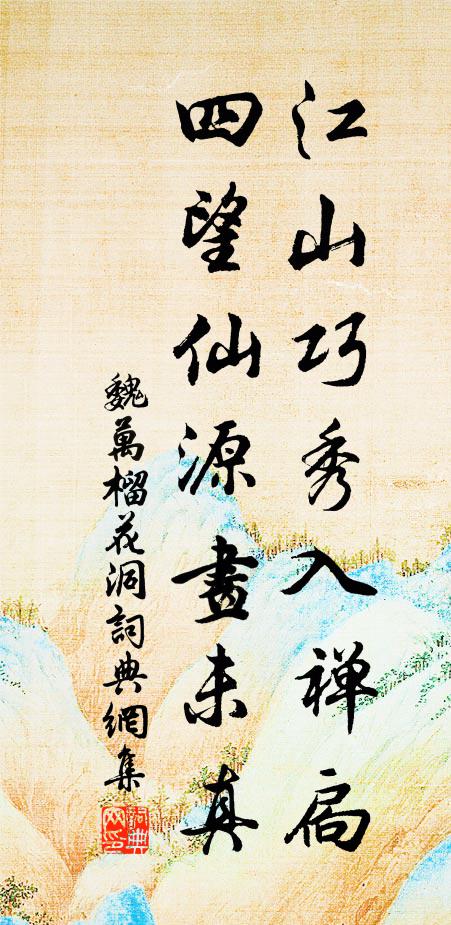 江山巧秀入禅扃
四望仙源畫未真
魏萬榴花洞詞典網集
詞典网印